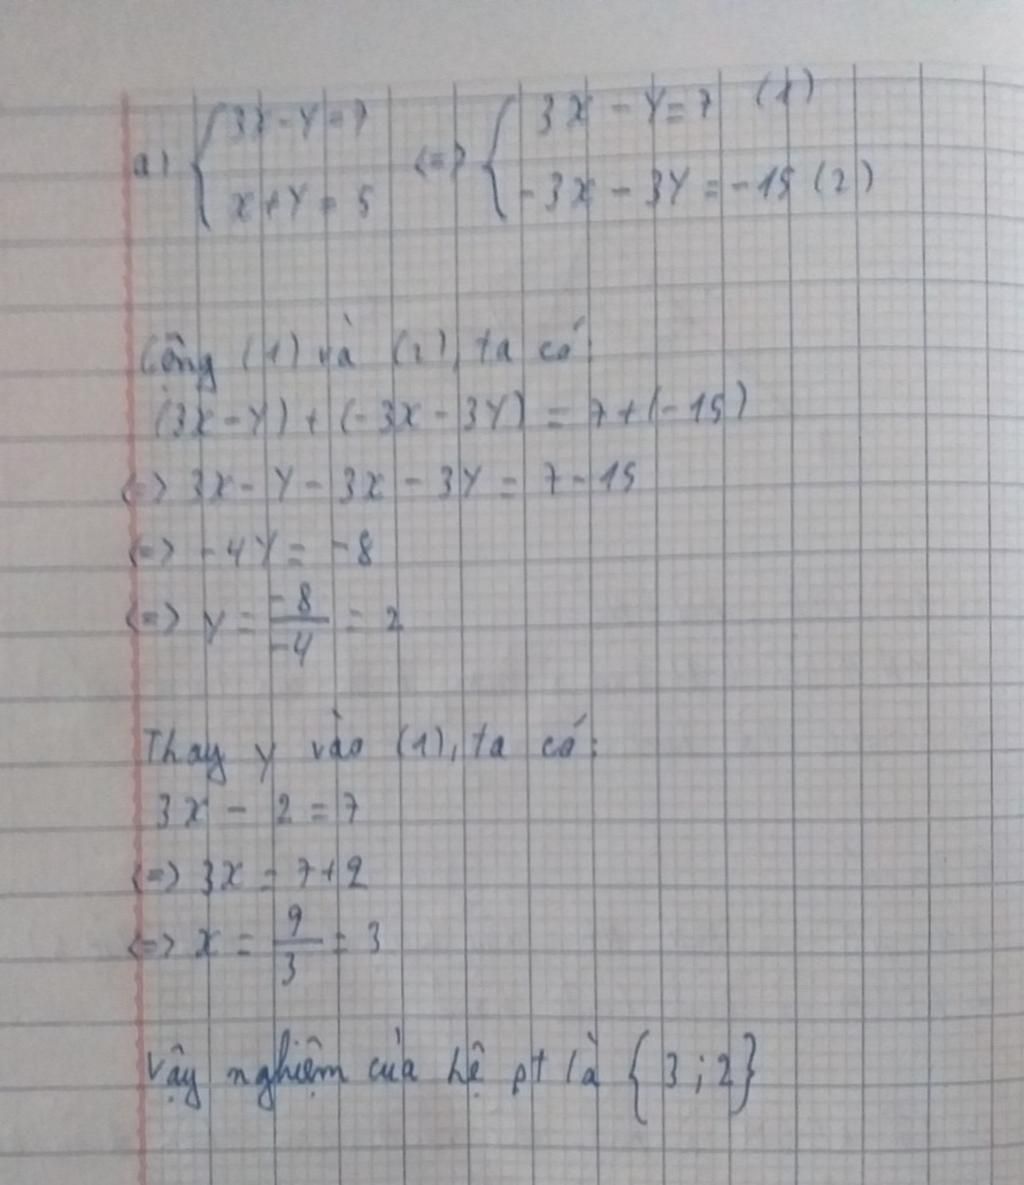 a) { 3x - y = 7 <=> { 3x - y = 7 (1)
x + y = 5 -3x - 3y = -15 (2)
Cộng (1) và (2), ta có:
(3x - y) + (-3x - 3y) = 7 + (-15)
<=> 3x - y - 3x - 3y = 7 - 15
<=> -4y = -8
<=> y = -8/-4 = 2
Thay y vào (1), ta có:
3x - 2 = 7
<=> 3x = 7 + 2
<=> x = 9/3 = 3
Vậy nghiệm của hệ pt là {3; 2}